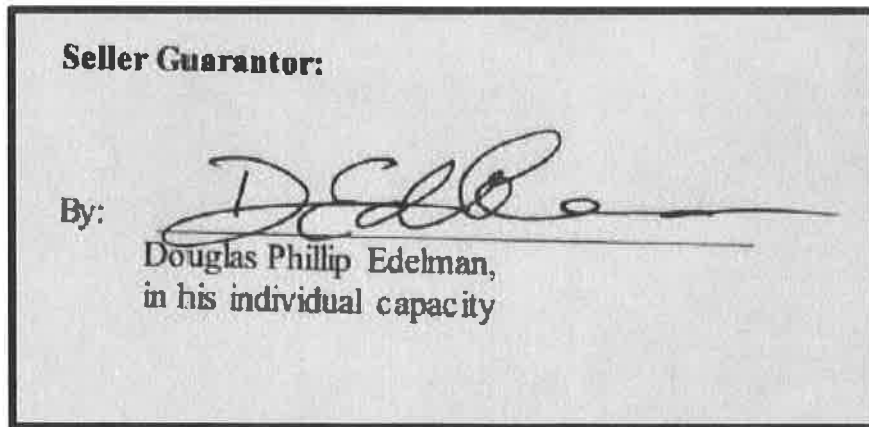 Seller Guarantor:
By:
Douglas Phillip Edelman,
in his individual capacity